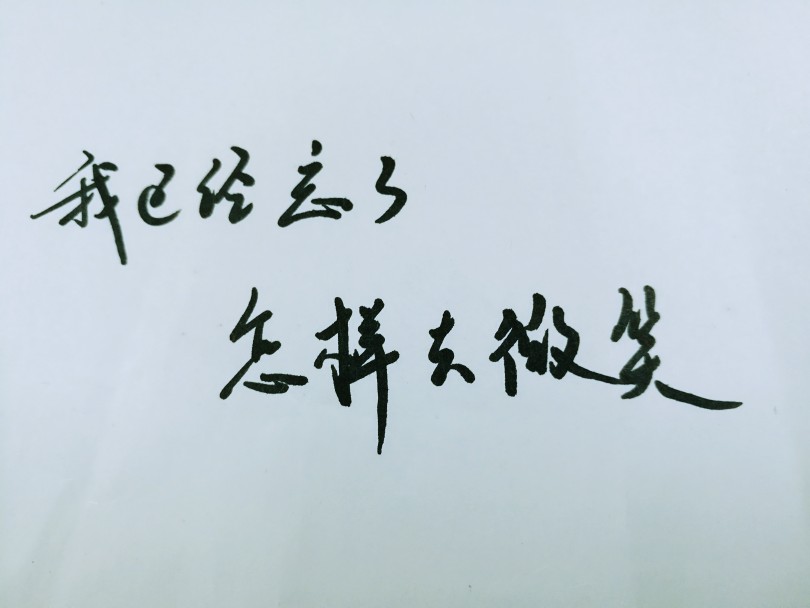 我已经忘了
怎样去微笑